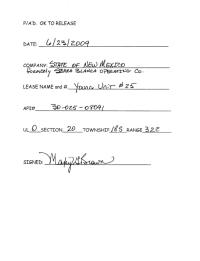 P/A'D. OK TO RELEASE
DATE: 6/23/2009
COMPANY: STATE OF NEW MEXICO
formerly SIERRA BLANCA OPERATING CO.
LEASE NAME and #: Young Unit #25
API# 30-025-08091
UL O SECTION 20 TOWNSHIP 18S RANGE 32E
SIGNED: